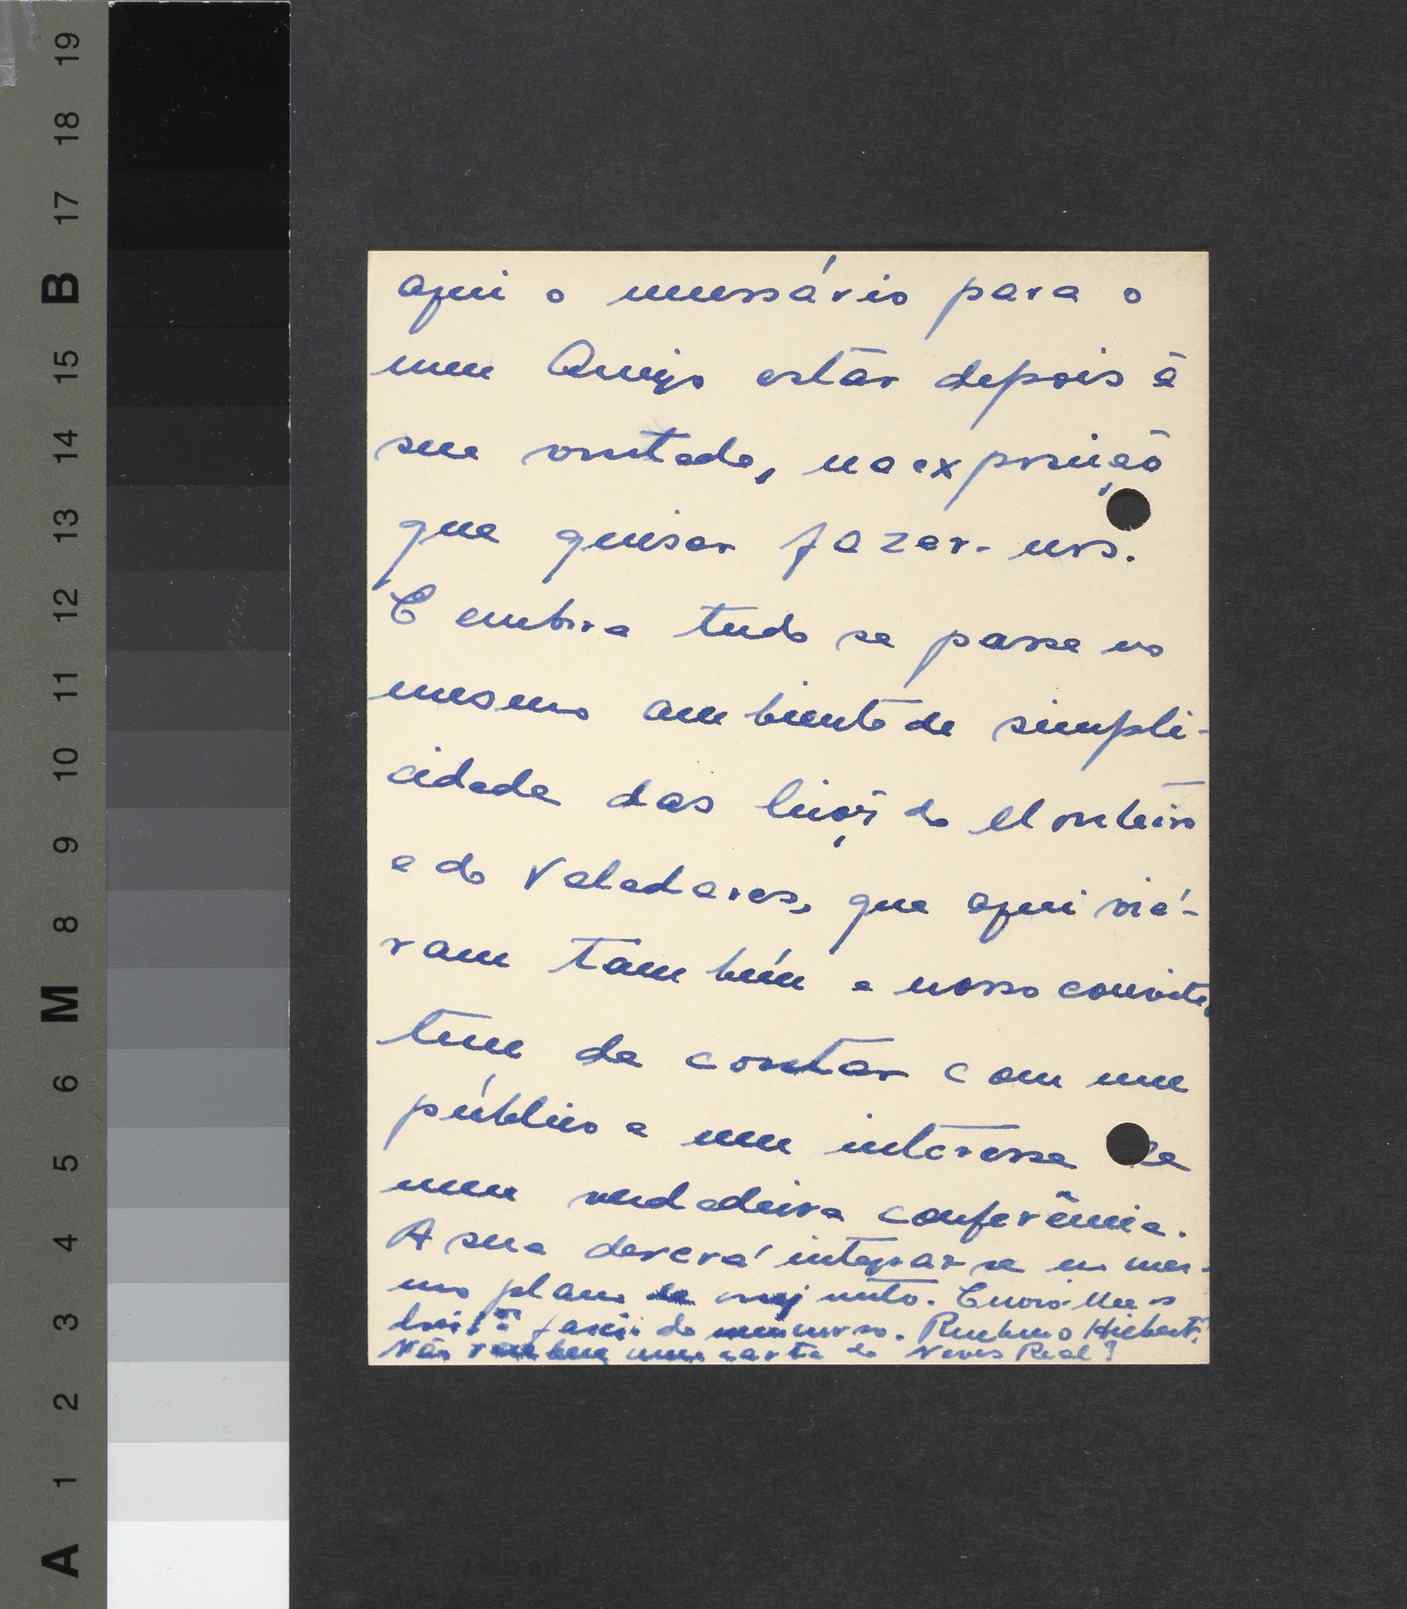 19
18
17
B
15
14
13
12
11
10
9
8
M
6
5
4
3
2
1
A
aqui o necessário para o
meu Amigo estár depois à
sua vontade, na exposição
que quiser fazer-nos.
E embora tudo se passe no
mesmo ambiente de simpli-
cidade das lições do Monteiro
e do Valadares, que aqui vié-
ram também a nosso convite,
tem de contar com um
público e um interesse de
uma verdadeira conferência.
A sua deverá integrar-se no mes-
mo plano conjunto. Envio-lhe o
do Rubens o Hiebert?
Não uma carta do Neves Real?